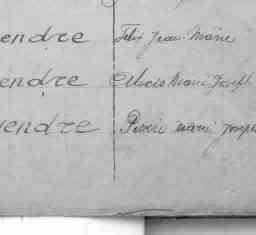 endre Felix Jean Marie
endre Alvois Marie Joseph
endre Pierre marie joseph